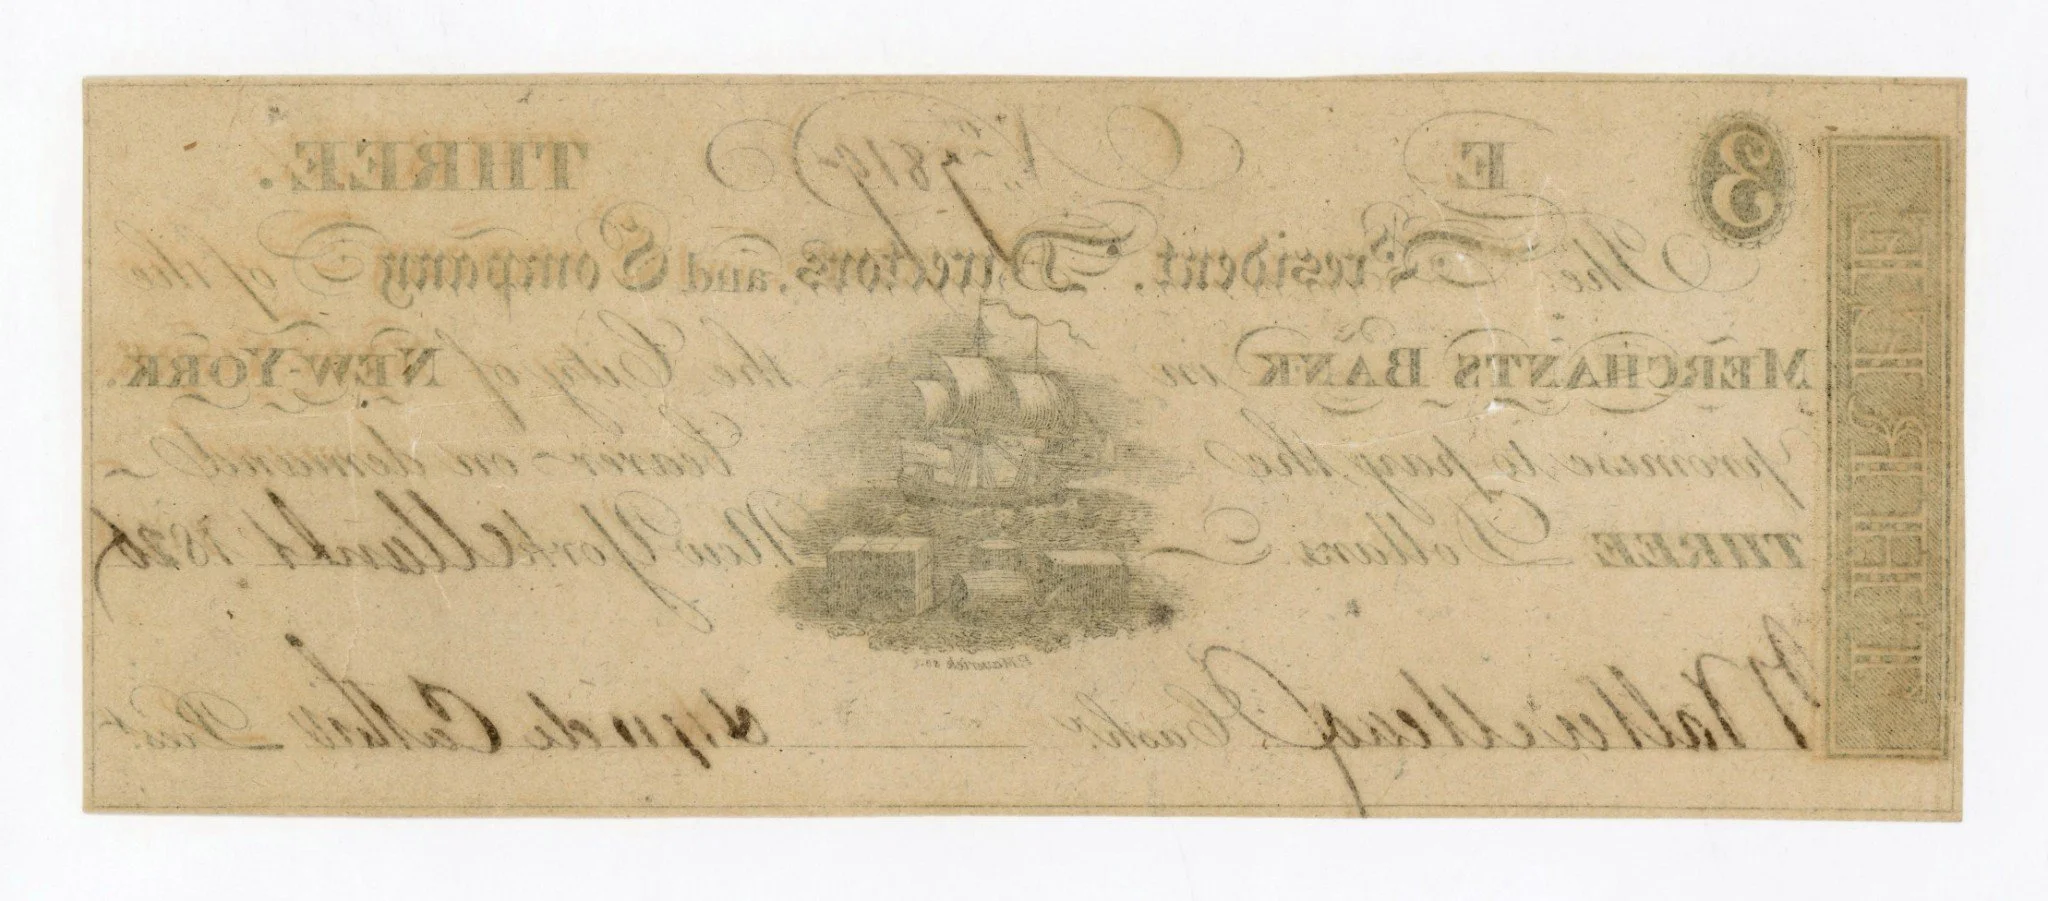 THREE
3 E No. 7819 THREE.
The President, Directors, and Company of the
MERCHANTS BANK in the City of NEW-YORK.
promise to pay the bearer on demand
THREE Dollars. New York 182
P. Maverick sc.
Cashr. Lynde Catlin Prest.